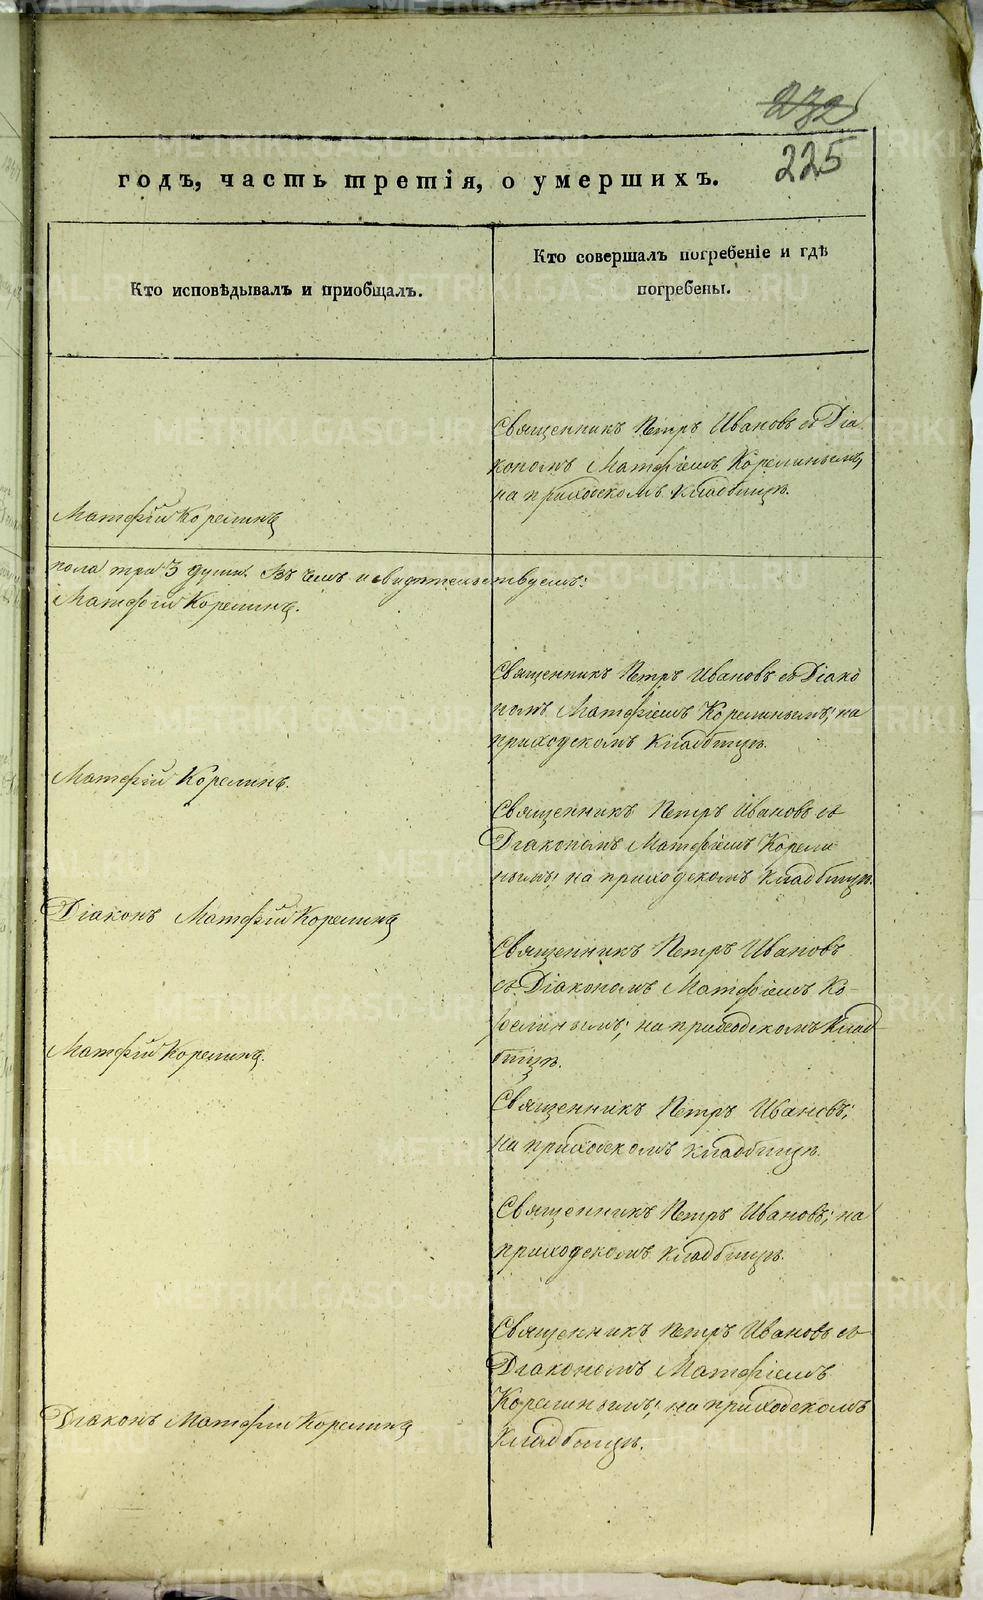 232
225
годъ, часть третія, о умершихъ.
Кто исповѣдывалъ и приобщалъ.
Кто совершалъ погребеніе и гдѣ
погребены.
Священникъ Петръ Ивановъ съ Діа
кономъ Матфіемъ Корелинымъ,
на приходскомъ кладбищѣ.
Матфій Корелинъ
пола три 3 души. Въ чемъ и свидѣтельствуемъ:
Матфій Корелинъ.
Священникъ Петръ Ивановъ съ Діако
номъ Матфіемъ Корелинымъ; на
приходскомъ кладбищѣ.
Матфій Корелинъ.
Священникъ Петръ Ивановъ съ
Діакономъ Матфіемъ Корели
нымъ; на приходскомъ кладбищѣ.
Діаконъ Матфій Корелинъ
Священникъ Петръ Ивановъ
съ Діакономъ Матфіемъ Ко-
релинымъ; на приходскомъ клад-
бищѣ.
Матфій Корелинъ.
Священникъ Петръ Ивановъ;
на приходскомъ кладбищѣ.
Священникъ Петръ Ивановъ; на
приходскомъ кладбищѣ.
Священникъ Петръ Ивановъ съ
Діакономъ Матфіемъ
Корелинымъ; на приходскомъ
кладбищѣ.
Діаконъ Матфій Корелинъ
METRIKI.GASO-URAL.RU